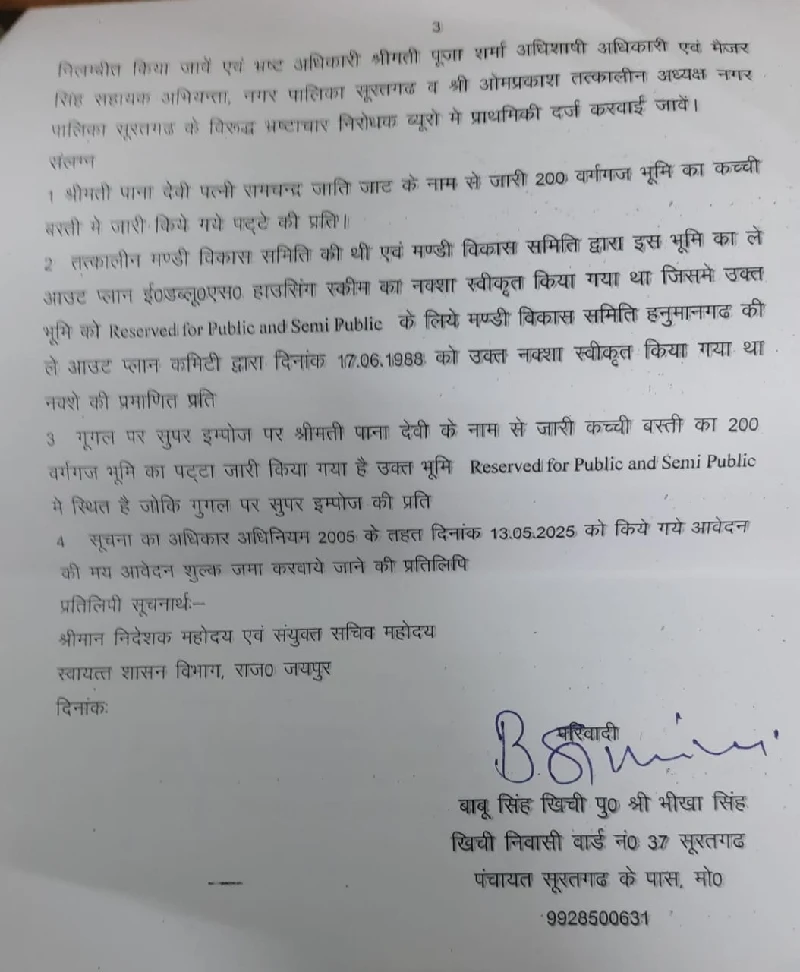 3
निलम्बीत किया जावें एवं भष्ट अधिकारी श्रीमती पूजा शर्मा अधिशाषी अधिकारी एवं मेजर
सिंह सहायक अभियन्ता, नगर पालिका सूरतगढ व श्री ओमप्रकाश तत्कालीन अध्यक्ष नगर
पालिका सूरतगढ के विरुद्ध भष्टाचार निरोधक ब्यूरो मे प्राथमिकी दर्ज करवाई जावें।
संलग्न
1 श्रीमती पाना देवी पत्नी रामचन्द्र जाति जाट के नाम से जारी 200 वर्गगज भूमि का कच्ची
बस्ती मे जारी किये गये पट्टे की प्रति।
2 तत्कालीन मण्डी विकास समिति की थी एवं मण्डी विकास समिति द्वारा इस भूमि का ले
आउट प्लान ई0डब्लू0एस0 हाउसिंग स्कीम का नक्शा स्वीकृत किया गया था जिसमे उक्त
भूमि को Reserved for Public and Semi Public के लिये मण्डी विकास समिति हनुमानगढ की
ले आउट प्लान कमिटी द्वारा दिनांक 17.06.1988 को उक्त नक्शा स्वीकृत किया गया था
नक्शे की प्रमाणित प्रति
3 गूगल पर सुपर इम्पोज पर श्रीमती पाना देवी के नाम से जारी कच्ची बस्ती का 200
वर्गगज भूमि का पट्टा जारी किया गया है उक्त भूमि Reserved for Public and Semi Public
मे स्थित है जोकि गुगल पर सुपर इम्पोज की प्रति
4 सूचना का अधिकार अधिनियम 2005 के तहत दिनांक 13.05.2025 को किये गये आवेदन
की मय आवेदन शुल्क जमा करवाये जाने की प्रतिलिपि
प्रतिलिपी सूचनार्थः–
श्रीमान निदेशक महोदय एवं संयुक्त सचिव महोदय
स्वायत्त शासन विभाग, राज0 जयपुर
दिनांकः
परिवादी
बाबू सिंह खिची पु0 श्री भीखा सिंह
खिची निवासी वार्ड नं0 37 सूरतगढ
पंचायत सूरतगढ के पास, मो0
9928500631